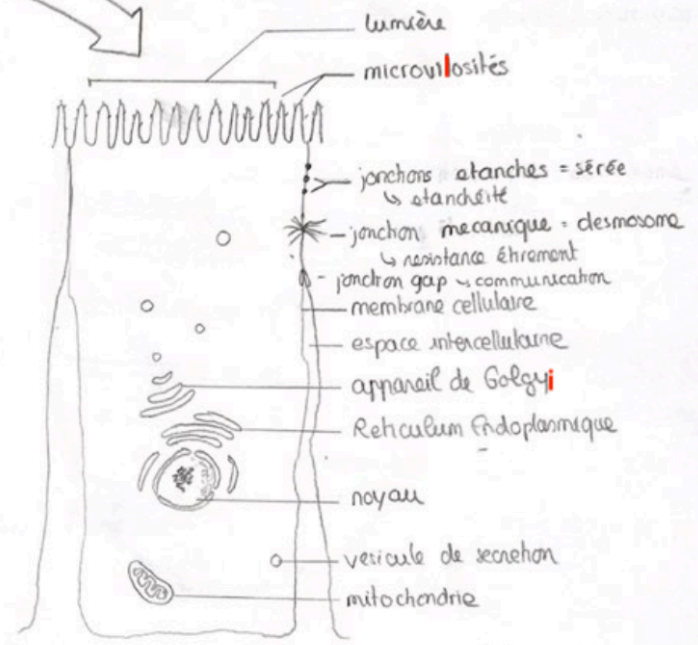 lumière
microvilosités
jonchons etanches = sérée
↳ etanchéité
jonchon mecanique = desmosome
↳ resistance étirement
jonction gap ↳ communication
membrane cellulaire
espace intercellulaire
appareil de Golgyi
Reticulum Endoplasmique
noyau
vesicule de secretion
mitochondrie